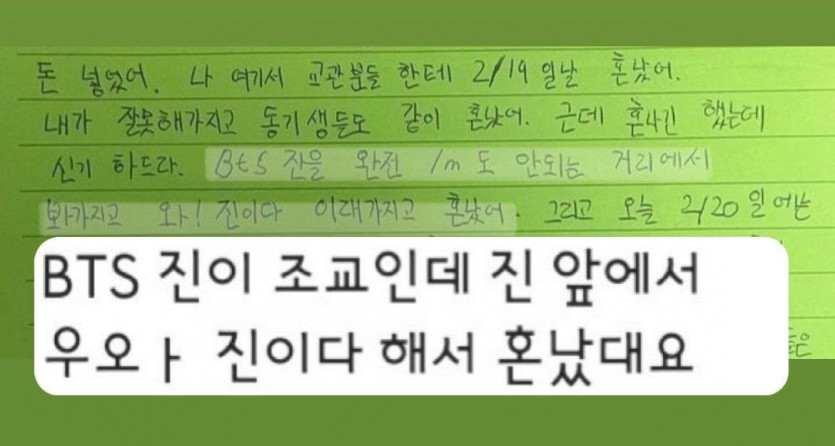 돈 넣었어. 나 여기서 교관분들 한테 2/19 일날 혼났어.
내가 잘못해가지고 동기생들도 같이 혼났어. 근데 혼나긴 했는데
신기 하드라. BtS 진을 완전 1m 도 안되는 거리에서
봐가지고 와! 진이다 이래가지고 혼났어. 그리고 오늘 2/20 일에는
BTS 진이 조교인데 진 앞에서
우오ㅏ 진이다 해서 혼났대요